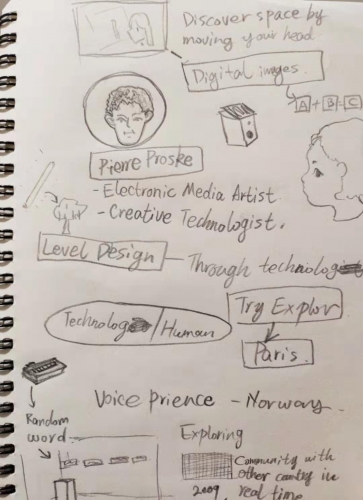 Discover space by
moving your head
Digital images.
A + B = C
Pierre Proske
- Electronic Media Artist
- Creative Technologist.
Level Design - Through technolog
Technolog / Human
Try Explor
Paris.
Voice prience - Norway.
Random
word
Exploring
Community with
other country in
real time
2009